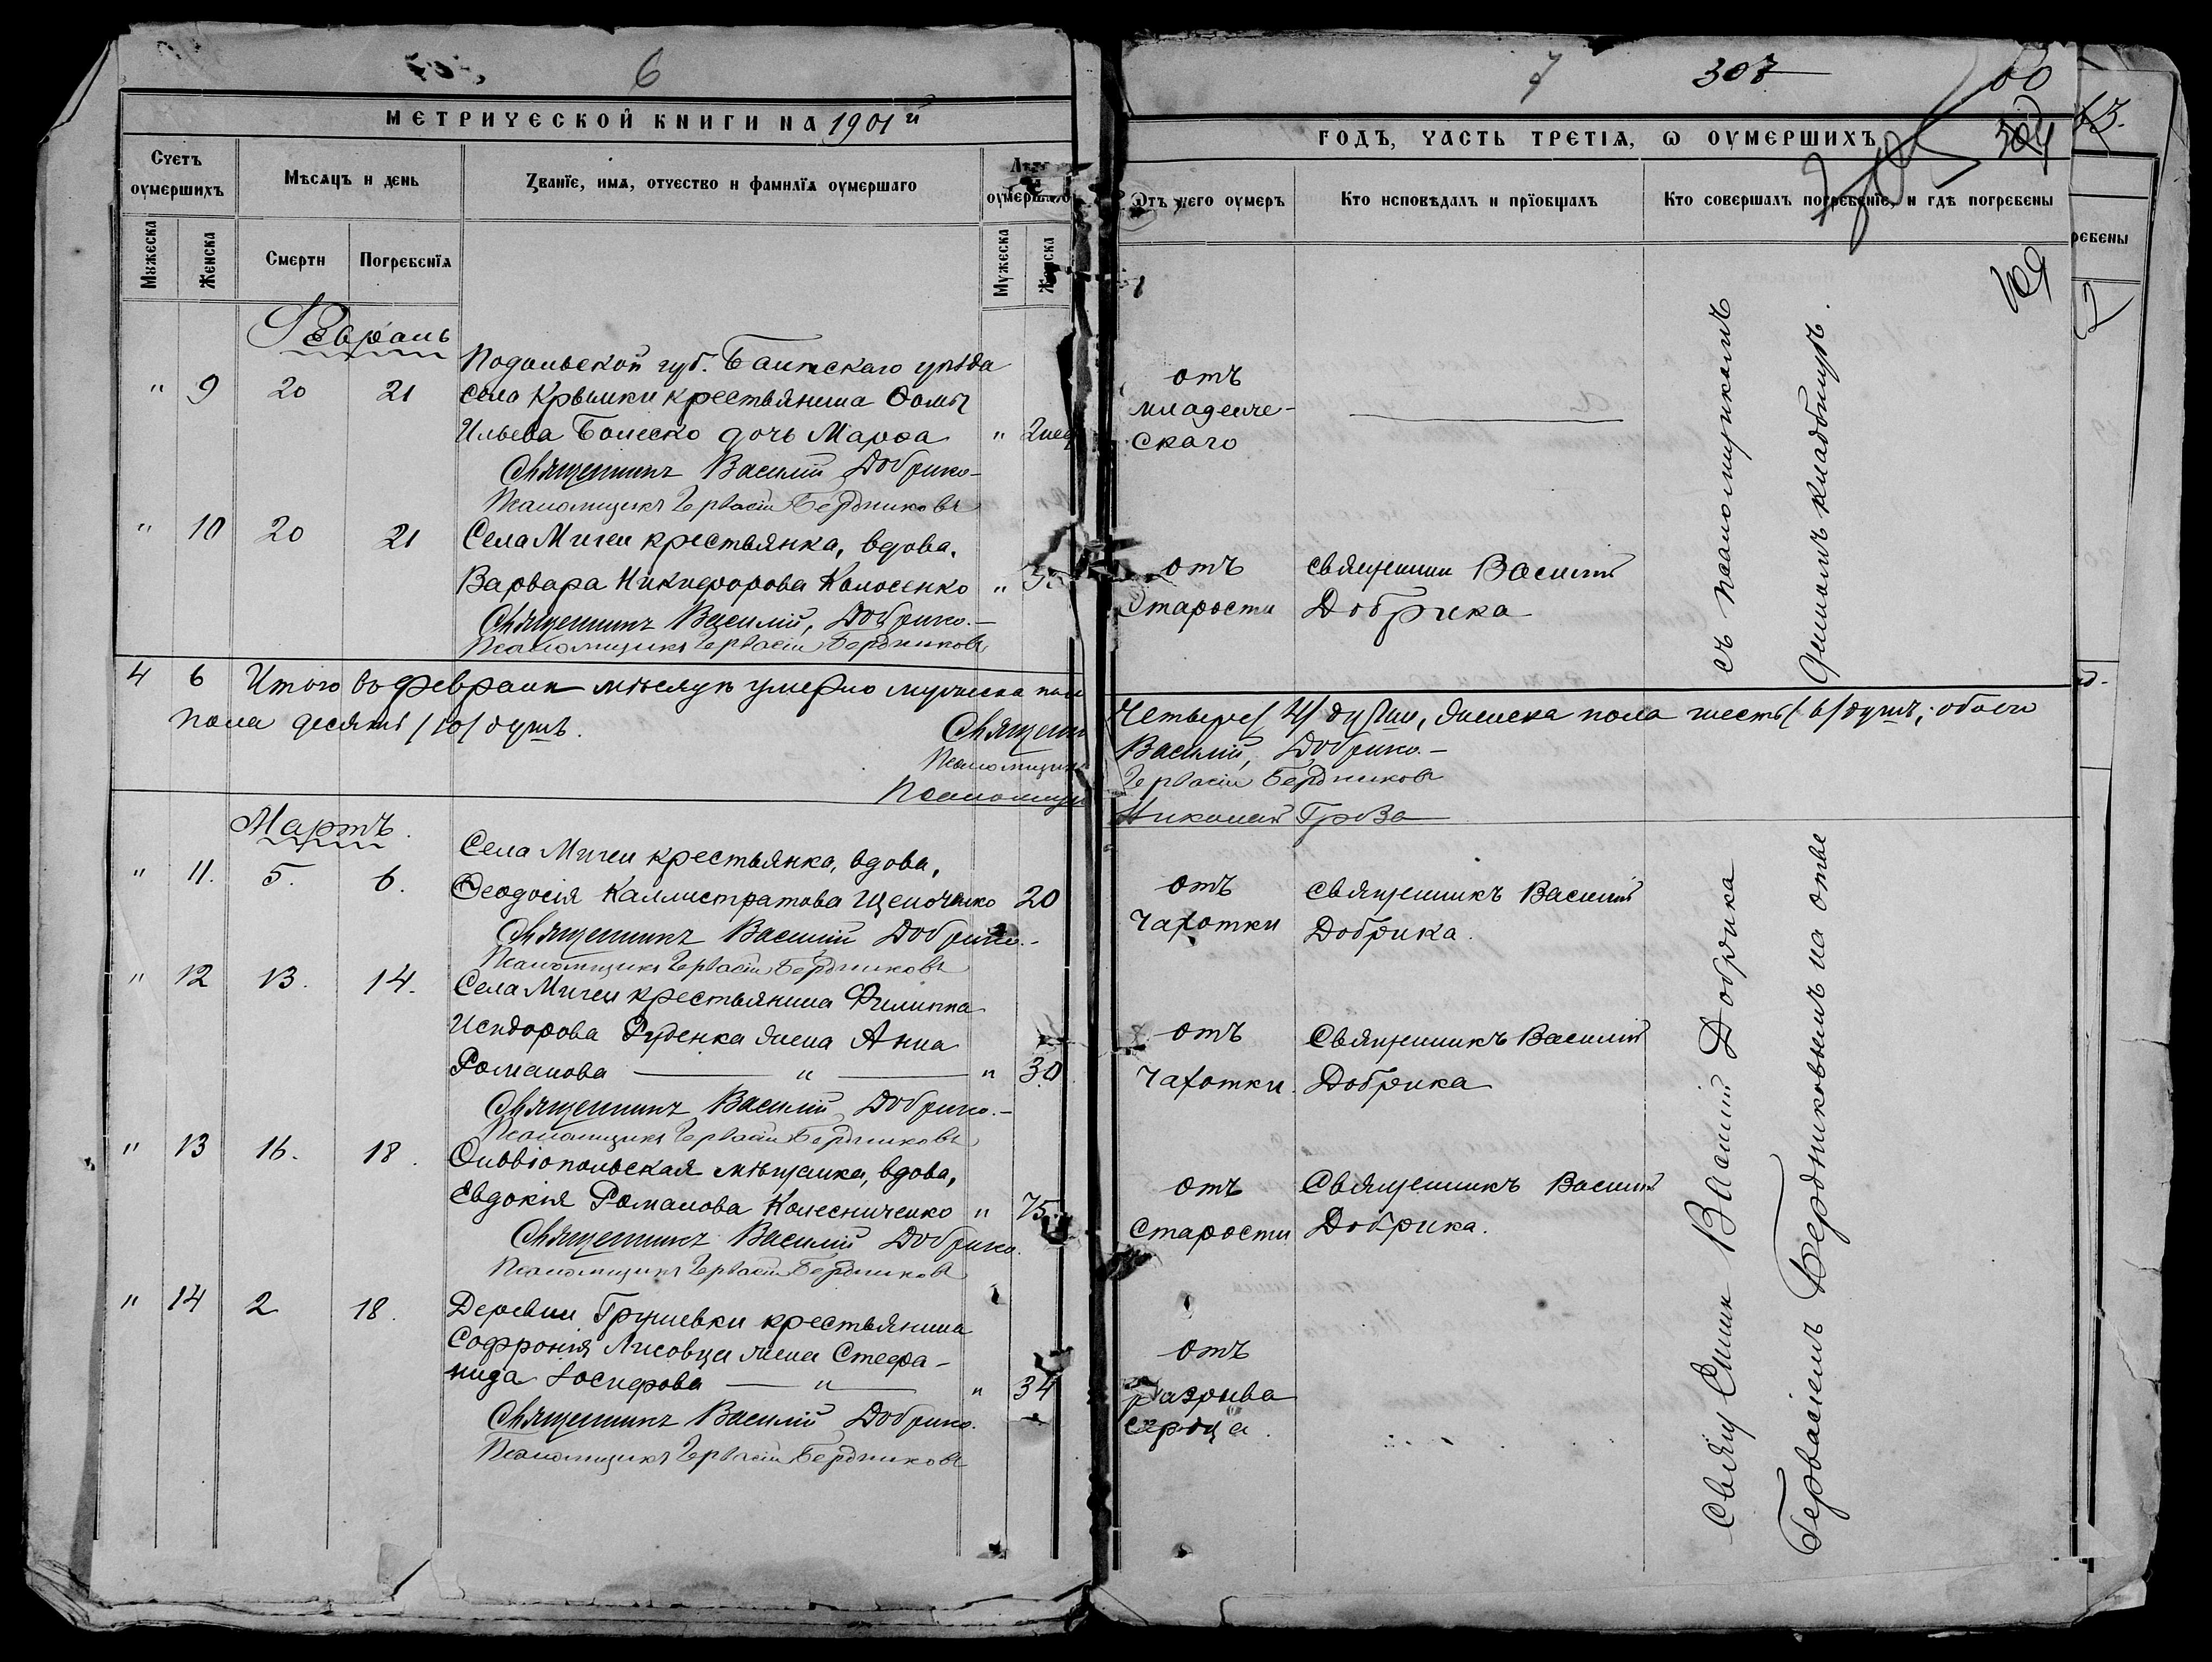 6
МЕТРИЧЕСКОЙ КНИГИ НА 1901й
Счетъ оумершихъ
Мѣсяцъ и день
Званїе, имя, отчество и фамилїя оумершаго
Лѣта оумершаго
Мужеска
Женска
Смерти
Погребенїя
Мужеска
Женска
Февраль
Подольской губ. Балтскаго уѣзда
" 9 20 21 села Крымки крестьянина Ѳомы
Ильева дочь Марѳа " 2 нед
Священникъ Василій Добрика
Псаломщикъ Гервасій Бердниковъ
" 10 20 21 Села Мигеи крестьянка, вдова,
Варвара Никифорова Колосенко "
Священникъ Василій Добрика
Псаломщикъ Гервасій Бердниковъ
4 6 Итого въ февралѣ мѣсяцѣ умерло мужеска пола
пола десять /10/ душъ.
Священникъ
Псаломщикъ
Псаломщикъ
Мартъ.
Села Мигеи крестьянка, вдова,
" 11. 5. 6. Ѳеодосія Каллистратова 20
Священникъ Василій Добрика
Псаломщикъ Гервасій Бердниковъ
" 12 13. 14. Села Мигеи крестьянина Филиппа
Исидорова Руденка жена Анна
Романова " " 30
Священникъ Василій Добрика
Псаломщикъ Гервасій Бердниковъ
" 13 16. 18. Ольвіопольская мѣщанка, вдова,
Евдокія Романова Колесниченко " 75
Священникъ Василій Добрика
Псаломщикъ Гервасій Бердниковъ
" 14 2 18. Деревни Грушевки крестьянина
Софронія Лисовца жена Стефа-
нида Іосифова " " 34
Священникъ Василій Добрика
Псаломщикъ Гервасій Бердниковъ
7 307 60
ГОДЪ, ЧАСТЬ ТРЕТІЯ, Ѡ ОУМЕРШИХЪ
Отъ чего оумеръ
Кто исповѣдалъ и прїобщалъ
Кто совершалъ погребенїе, и гдѣ погребены
ребены
отъ
младенче-
скаго
отъ священник Василій
старости Добрика
съ псаломщикомъ
кладбищѣ.
Четыре /4/ души, женска пола шесть /6/ душъ; обоего
Василій Добрика
Гервасій Бердниковъ
Николай Гроза
отъ священникъ Василій
чахотки Добрика.
отъ Священникъ Василій
чахотки. Добрика
отъ Священникъ Василій
старости Добрика.
отъ
разрыва
сердца.
Василій Добрика
Гервасіемъ Бердниковымъ на